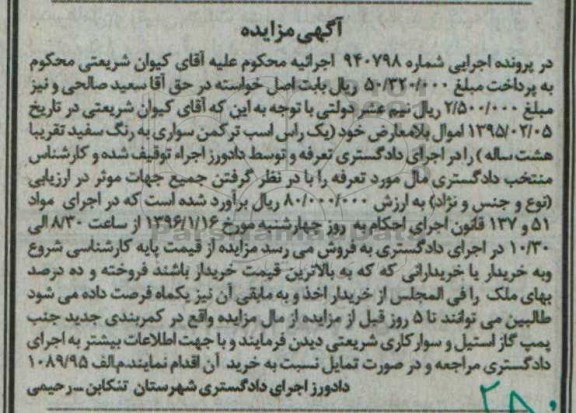 آگهی مزایده
در پرونده اجرایی شماره ۹۴۰۷۹۸ اجرائیه محکوم علیه آقای کیوان شریعتی محکوم
به پرداخت مبلغ ۵۰/۳۲۰/۰۰۰ ریال بابت اصل خواسته در حق آقا سعید صالحی و نیز
مبلغ ۲/۵۰۰/۰۰۰ ریال نیم عشر دولتی با توجه به این که آقای کیوان شریعتی در تاریخ
۱۳۹۵/۰۲/۰۵ اموال بلامعارض خود (یک راس اسب ترکمن سواری به رنگ سفید تقریبا
هشت ساله) را در اجرای دادگستری تعرفه و توسط دادورز اجراء توقیف شده و کارشناس
منتخب دادگستری مال مورد تعرفه را با در نظر گرفتن جمیع جهات موثر در ارزیابی
(نوع و جنس و نژاد) به ارزش ۸۰/۰۰۰/۰۰۰ ریال برآورد شده است که در اجرای مواد
۵۱ و ۱۳۷ قانون اجرای احکام به روز چهارشنبه مورخ ۱۳۹۶/۱/۱۶ از ساعت ۸/۳۰ الی
۱۰/۳۰ در اجرای دادگستری به فروش می رسد مزایده از قیمت پایه کارشناسی شروع
وبه خریدار یا خریدارانی که که به بالاترین قیمت خریدار باشند فروخته و ده درصد
بهای ملک را فی المجلس از خریدار اخذ و به مابقی آن نیز یکماه فرصت داده می شود
طالبین می توانند تا ۵ روز قبل از مزایده از مال مزایده واقع در کمربندی جدید جنب
پمپ گاز استیل و سوارکاری شریعتی دیدن فرمایند و با جهت اطلاعات بیشتر به اجرای
دادگستری مراجعه و در صورت تمایل نسبت به خرید آن اقدام نمایند.م.الف ۱۰۸۹/۹۵
دادورز اجرای دادگستری شهرستان تنکابن ـ رحیمی